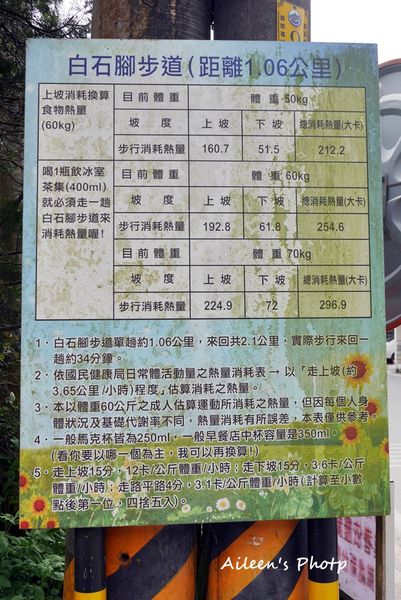 白石腳步道(距離1.06公里)
上坡消耗換算
食物熱量
(60kg)
喝1瓶飲冰室
茶集(400ml)
就必須走一趟
白石腳步道來
消耗熱量喔!
目前體重 體重50kg
坡度 上坡 下坡 總消耗熱量(大卡)
步行消耗熱量 160.7 51.5 212.2
目前體重 體重60kg
坡度 上坡 下坡 總消耗熱量(大卡)
步行消耗熱量 192.8 61.8 254.6
目前體重 體重70kg
坡度 上坡 下坡 總消耗熱量(大卡)
步行消耗熱量 224.9 72 296.9
1.白石腳步道單趟約1.06公里,來回共2.1公里,實際步行來回一
趟約34分鐘。
2.依國民健康局日常體活動量之熱量消耗表→以「走上坡(約
3.65公里/小時)程度」估算消耗之熱量。
3.本以體重60公斤之成人估算運動所消耗之熱量,但因每個人身
體狀況及基礎代謝率不同,熱量消耗有所誤差,本表僅供參考。
4.一般馬克杯皆為250ml,一般早餐店中杯容量是350ml。
(看你要以哪一個為主,我可以再換算!)
5.走上坡15分,12卡/公斤體重/小時;走下坡15分,3.6卡/公斤
體重/小時;走路平路4分,3.1卡/公斤體重/小時(計算至小數
點後第一位,四捨五入)。
Aileen's Photp